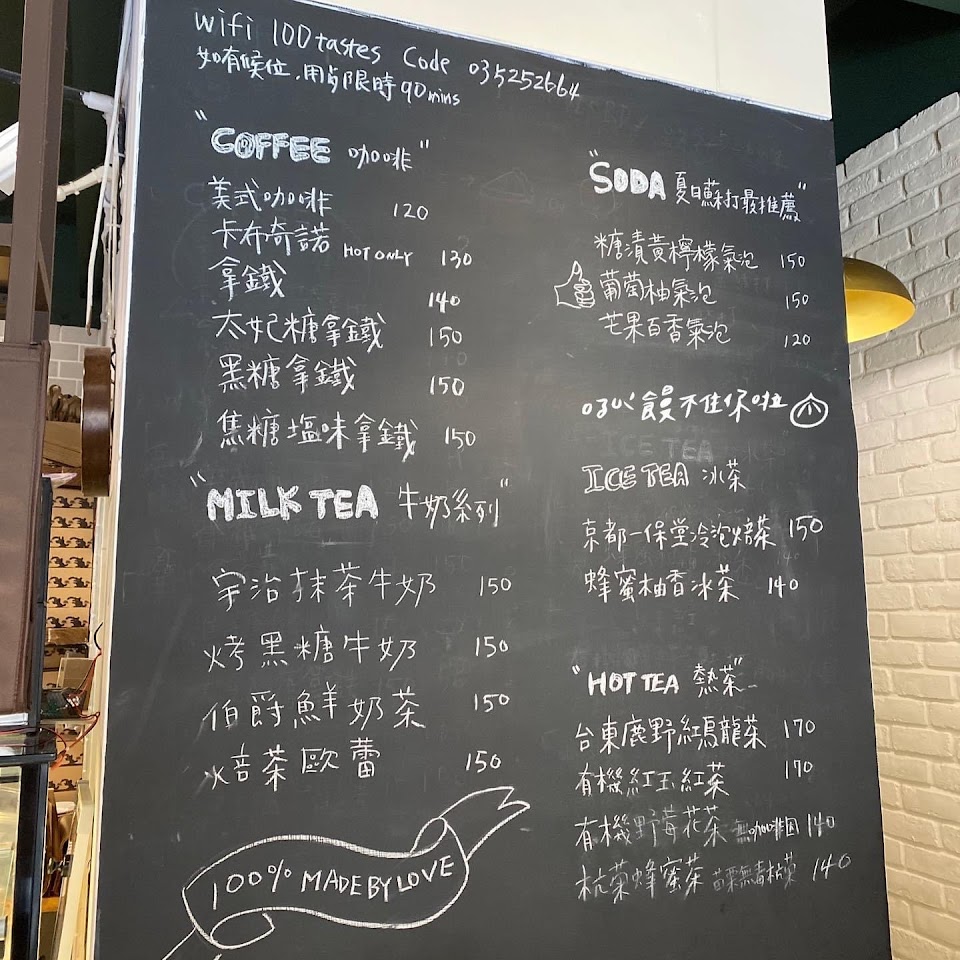 wifi 100tastes Code 035252664
如有候位,用步限時90mins
"COFFEE 咖啡"
美式咖啡 120
卡布奇諾 HOT ONLY 130
拿鐵 140
太妃糖拿鐵 150
黑糖拿鐵 150
焦糖塩味拿鐵 150
"MILK TEA 牛奶系列"
宇治抹茶牛奶 150
烤黑糖牛奶 150
伯爵鮮奶茶 150
焙茶歐蕾 150
100% MADE BY LOVE
"SODA 夏日蘇打最推薦"
糖漬黃檸檬氣泡 150
葡萄柚氣泡 150
芒果百香氣泡 120
不住
ICE TEA 冰茶
京都一保堂冷泡焙茶 150
蜂蜜柚香冰茶 140
"HOT TEA 熱茶"
台東鹿野紅烏龍茶 170
有機紅玉紅茶 170
有機野莓花茶 無咖啡因 140
杭菊蜂蜜茶 140